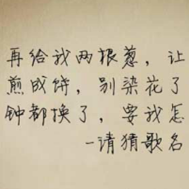 再给我两根葱，让
煎成饼，别染花了
钟都换了，要我怎
-请猜歌名